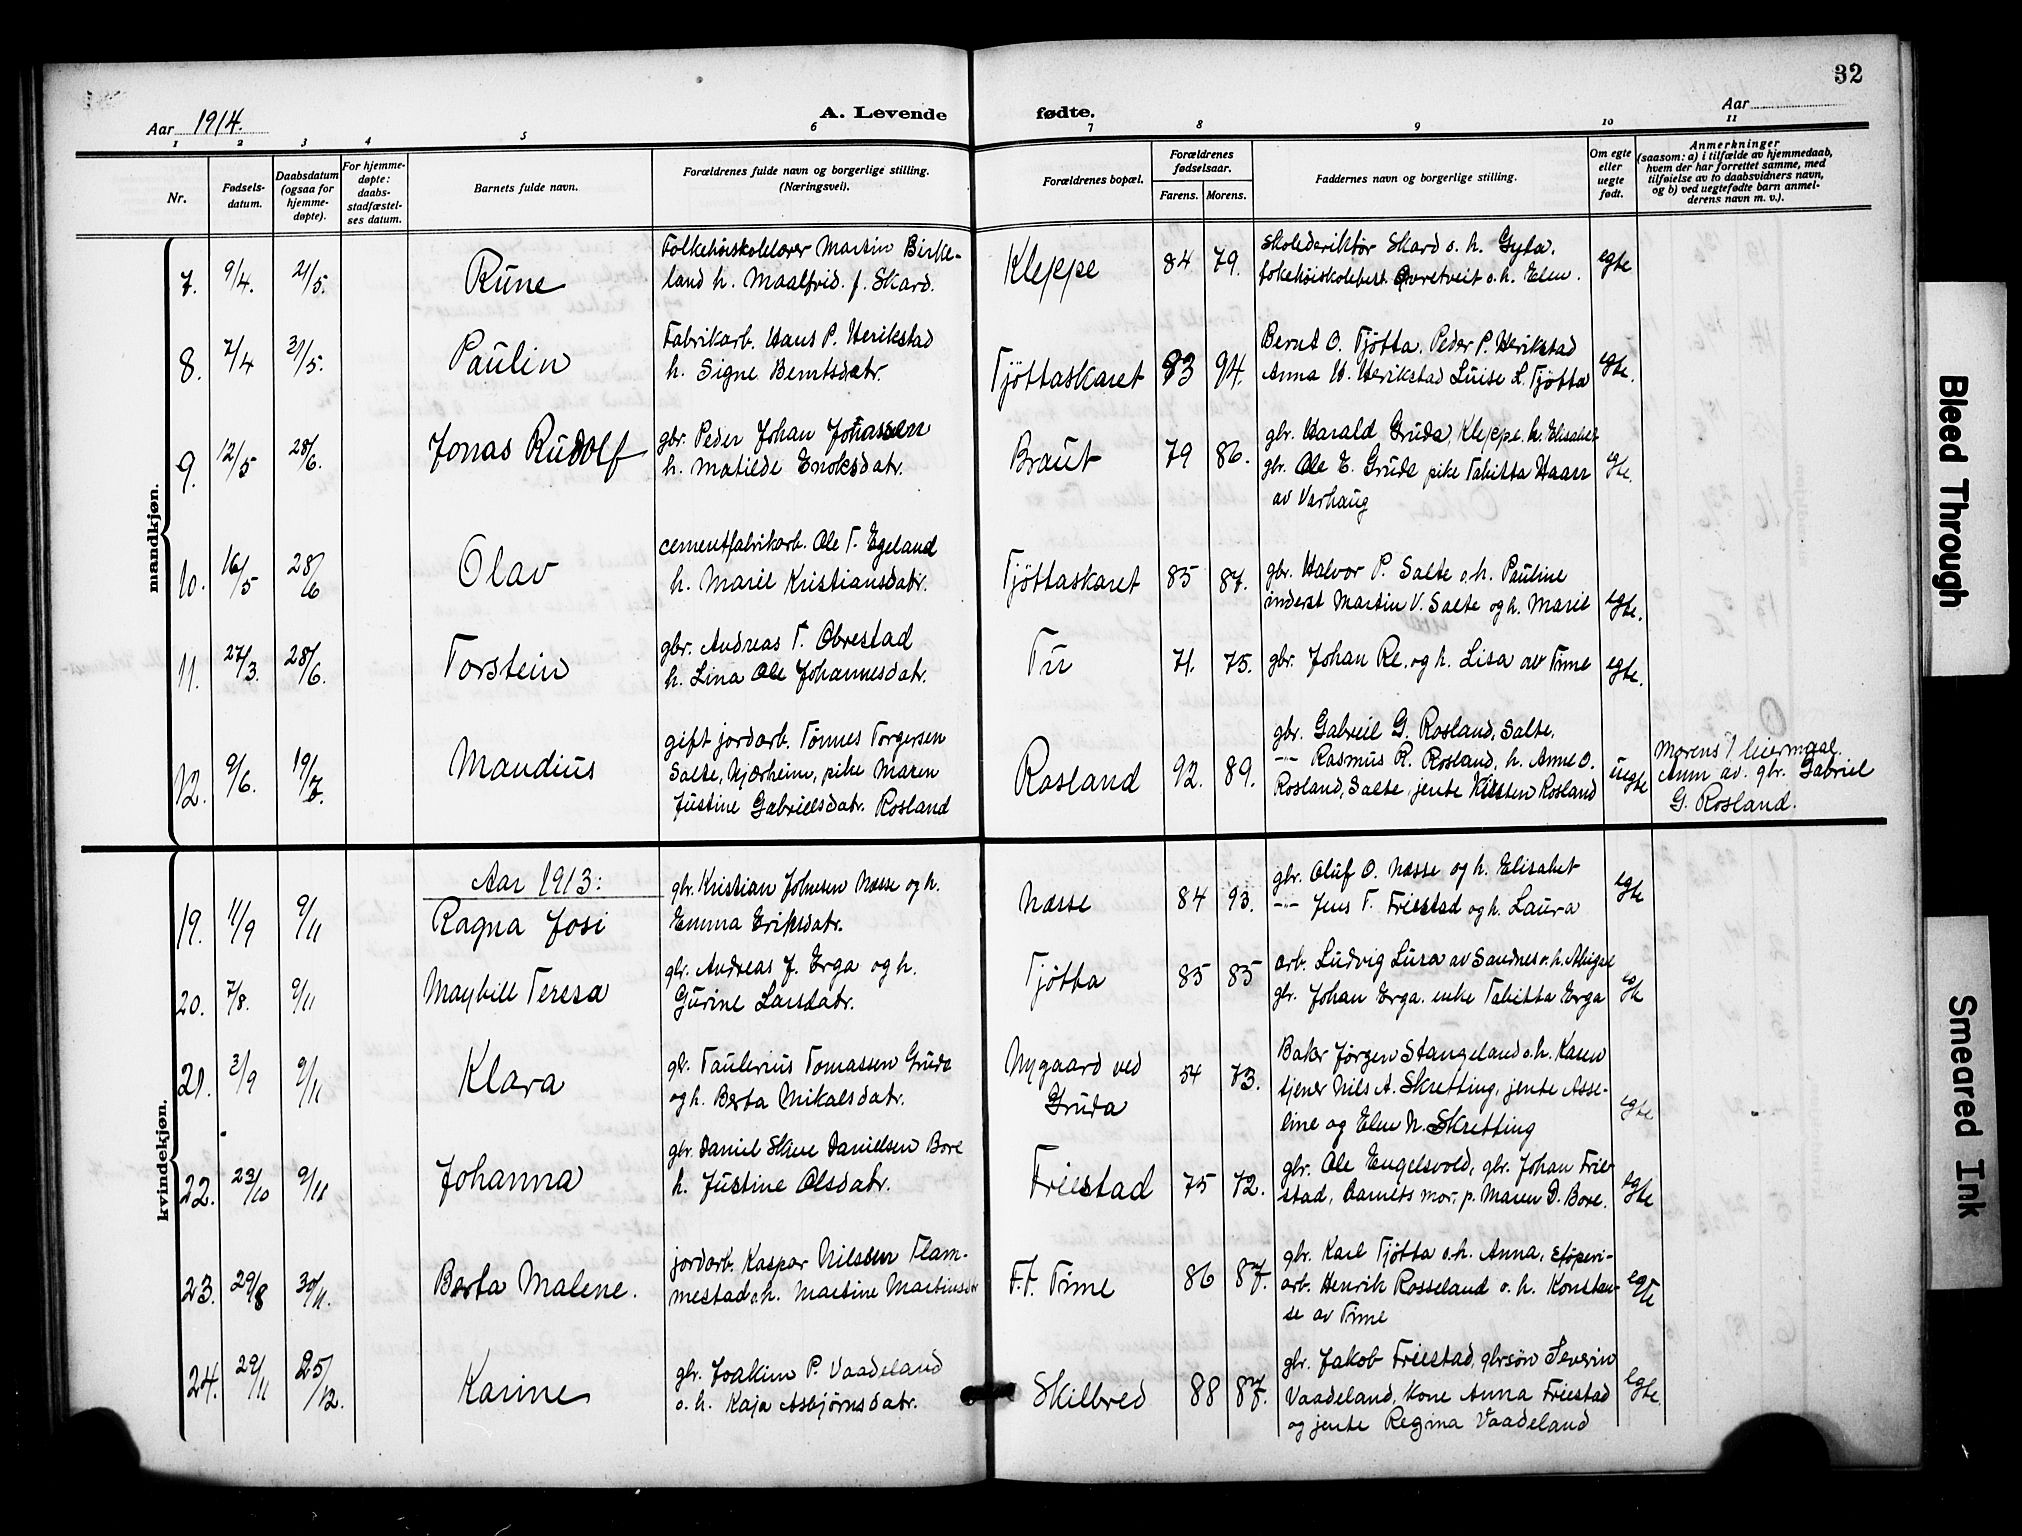 32
Aar 1914.
A. Levende fødte.
Aar
1 2 3 4 5 6 7 8 9 10 11
Nr.
Fødsels-
datum.
Daabsdatum
(ogsaa for
hjemme-
døpte).
For hjemme-
døpte:
daabs-
stadfæstel-
ses datum.
Barnets fulde navn.
Forældrenes fulde navn og borgerlige stilling.
(Næringsvei).
Forældrenes bopæl.
Forældrenes
fødselsaar.
Farens. Morens.
Faddernes navn og borgerlige stilling.
Om egte
eller
uegte
født.
Anmerkninger
(saasom: a) i tilfælde av hjemmedaab,
hvem der har forrettet samme, med
tilføielse av to daabsvidners navn,
og b) ved uegtefødte barn anmel-
derens navn m. v.).
mandkjøn.
7. 9/4. 21/5. Rune
Folkehøiskolelærer Martin Birke-
land h. Maalfrid f. Skard.
Kleppe 84. 79.
Skoledirektør Skard o. h. Gyda.
h. Elen.
egte
8. 7/4 31/5. Paulin
Fabrikarb. Hans P. Herikstad
h. Signe Berntsdatr.
Tjøttaskaret 83 94.
Bernt O. Tjøtta. Peder P. Herikstad
Anna H. Herikstad Luise L. Tjøtta
egte.
9. 12/5 28/6. Jonas Rudolf
gbr. Peder Johan Johnassen
h. Matilde Enoksdatr.
Braut 79 86.
gbr. Harald Gruda, Kleppe. h. Elisabet
gbr. Ole E. Grude pike Tabitta Haar
av Varhaug
egte.
10. 16/5 28/6 Olav
cementfabrikarb. Ole T. Egeland
h. Marie Kristiansdatr.
Tjøttaskaret 85 87.
gbr. Halvor P. Salte o. h. Pauline
inderst Martin V. Salte og h. Marie
egte.
11. 27/3. 28/6. Torstein
gbr. Andreas T. Obrestad
h. Lina Ole Johannesdatr.
Tu 71. 75.
gbr. Johan Re. og h. Lisa av Time
egte.
12. 9/6. 19/7. Mandius
gift jordarb. Tønnes Torgersen
Salte, Njærheim, pike Maren
Justine Gabrielsdatr. Rosland
Rosland 92. 89.
gbr. Gabriel G. Rosland, Salte.
-"- Rasmus R. Rosland, h. Anne O.
Rosland, Salte, jente Kirsten Rosland
uegte
Morens 1 leiermaal.
Anm av. gbr. Gabriel
G. Rosland.
kvindekjøn.
Aar 1913:
19. 11/9 9/11 Ragna Josi
gbr. Kristian Johnsen Næsse og h.
Emma Eriksdatr.
Næsse 84 93.
gbr. Oluf O. Næsse og h. Elisabet
-"- Jens T. Friestad og h. Laura
egte
20. 7/8. 9/11 Maybill Teresa
gbr. Andreas J. Erga og h.
Gurine Larsdatr.
Tjøtta 85 85
arb. Ludvig Lura av Sandnes o. h. Abigael
gbr. Johan Erga. enke Tabitta Erga
21. 3/9 9/11 Klara
gbr. Taulerius Tomassen Grude
og h. Berta Mikalsdatr.
Nygaard ved
Gruda
54 73.
Baker Jørgen Stangeland o. h. Karen
tjener Nils A. Skretting, jente Asse-
line og Elen N. Skretting
egte
22. 23/10 9/11 Johanna
gbr. Daniel Danielsen Bore
h. Justine Olsdatr.
Friestad 75 72.
gbr. Ole Engelsvold, gbr. Johan Frie-
stad, Barnets mor. p. Maren D. Bore.
egte
23. 29/8 30/11. Berta Malene.
jordarb. Kaspar Nilssen Flam-
mestad o. h. Martine Martinsdtr
F. f. Time 86 87.
gbr. Karl Tjøtta o. h. Anna, støperi-
arb. Henrik Rosseland o. h. Konstan-
se av Time
egte
24. 29/11 25/12. Karine
gbr. Joakim P. Vaadeland
o. h. Kaja Asbjørnsdatr.
Skilbred 88 87.
gbr. Jakob Friestad, gbrsøn Severin
Vaadeland, kone Anna Friestad
og jente Regina Vaadeland
egte.
Bleed Through
Smeared Ink